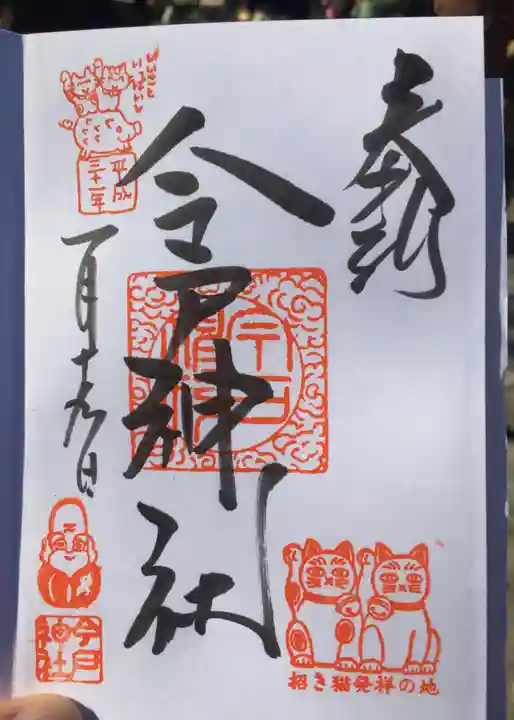 奉拝
今戸神社
平成
三十一年
一月十九日
今戸
神社
招き猫発祥の地